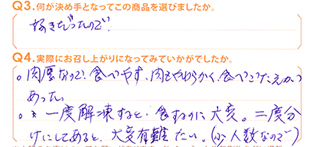 Q3.何が決め手となってこの商品を選びましたか。
好きだったので
Q4.実際にお召し上がりになってみていかがでしたか。
。肉厚なので、食べやす、肉もやわらかく、食べごたえがあった。
あった。
。* 一度解凍すると、食すのに大変。二度分
けにしてあると、大変有難たい。(少人数なので)